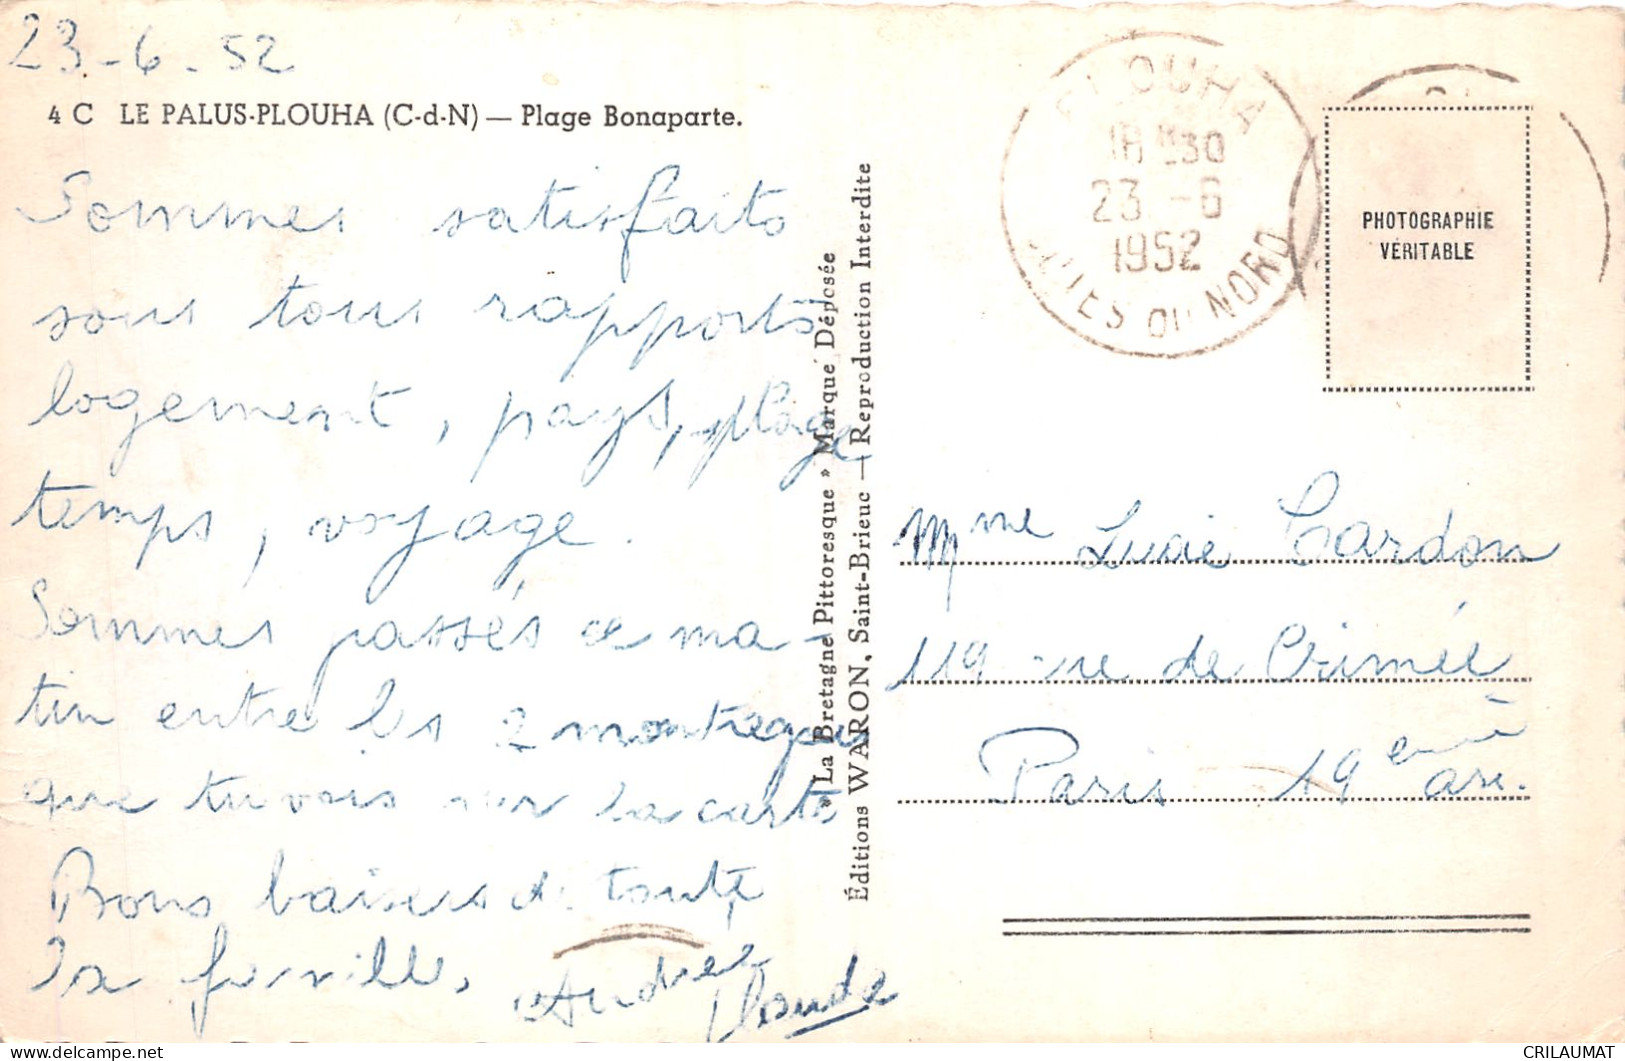 23-6-52
4 C LE PALUS-PLOUHA (C-d-N) — Plage Bonaparte.
Sommes satisfaits
sous tous rapports
logement, pays, plage
temps, voyage.
Sommes passés ce ma-
tin entre les 2 montagnes
que tu vois sur la carte
Bons baisers de toute
la famille.
Andrée
Claude
« La Bretagne Pittoresque » Marque Déposée
Éditions WARON, Saint-Brieuc — Reproduction Interdite
PLOUHA
18 H 30
23 -6
1952
COTES DU NORD
PHOTOGRAPHIE
VÉRITABLE
Mme Lucie Cardon
119 rue de Crimée
Paris 19eme arr.
CRILAUMAT